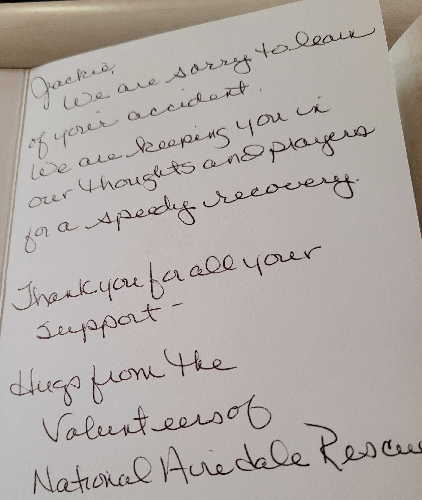 Jackie,
We are sorry to learn
of your accident.
We are keeping you in
our thoughts and prayers
for a speedy recovery.
Thank you for all your
support -
Hugs from the
Volunteers of
National Airedale Rescue